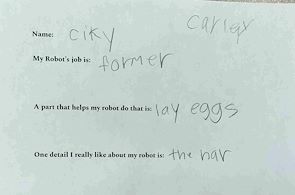 Carler
Name: ciky
My Robot's job is: former
A part that helps my robot do that is: lay eggs
One detail I really like about my robot is: the har